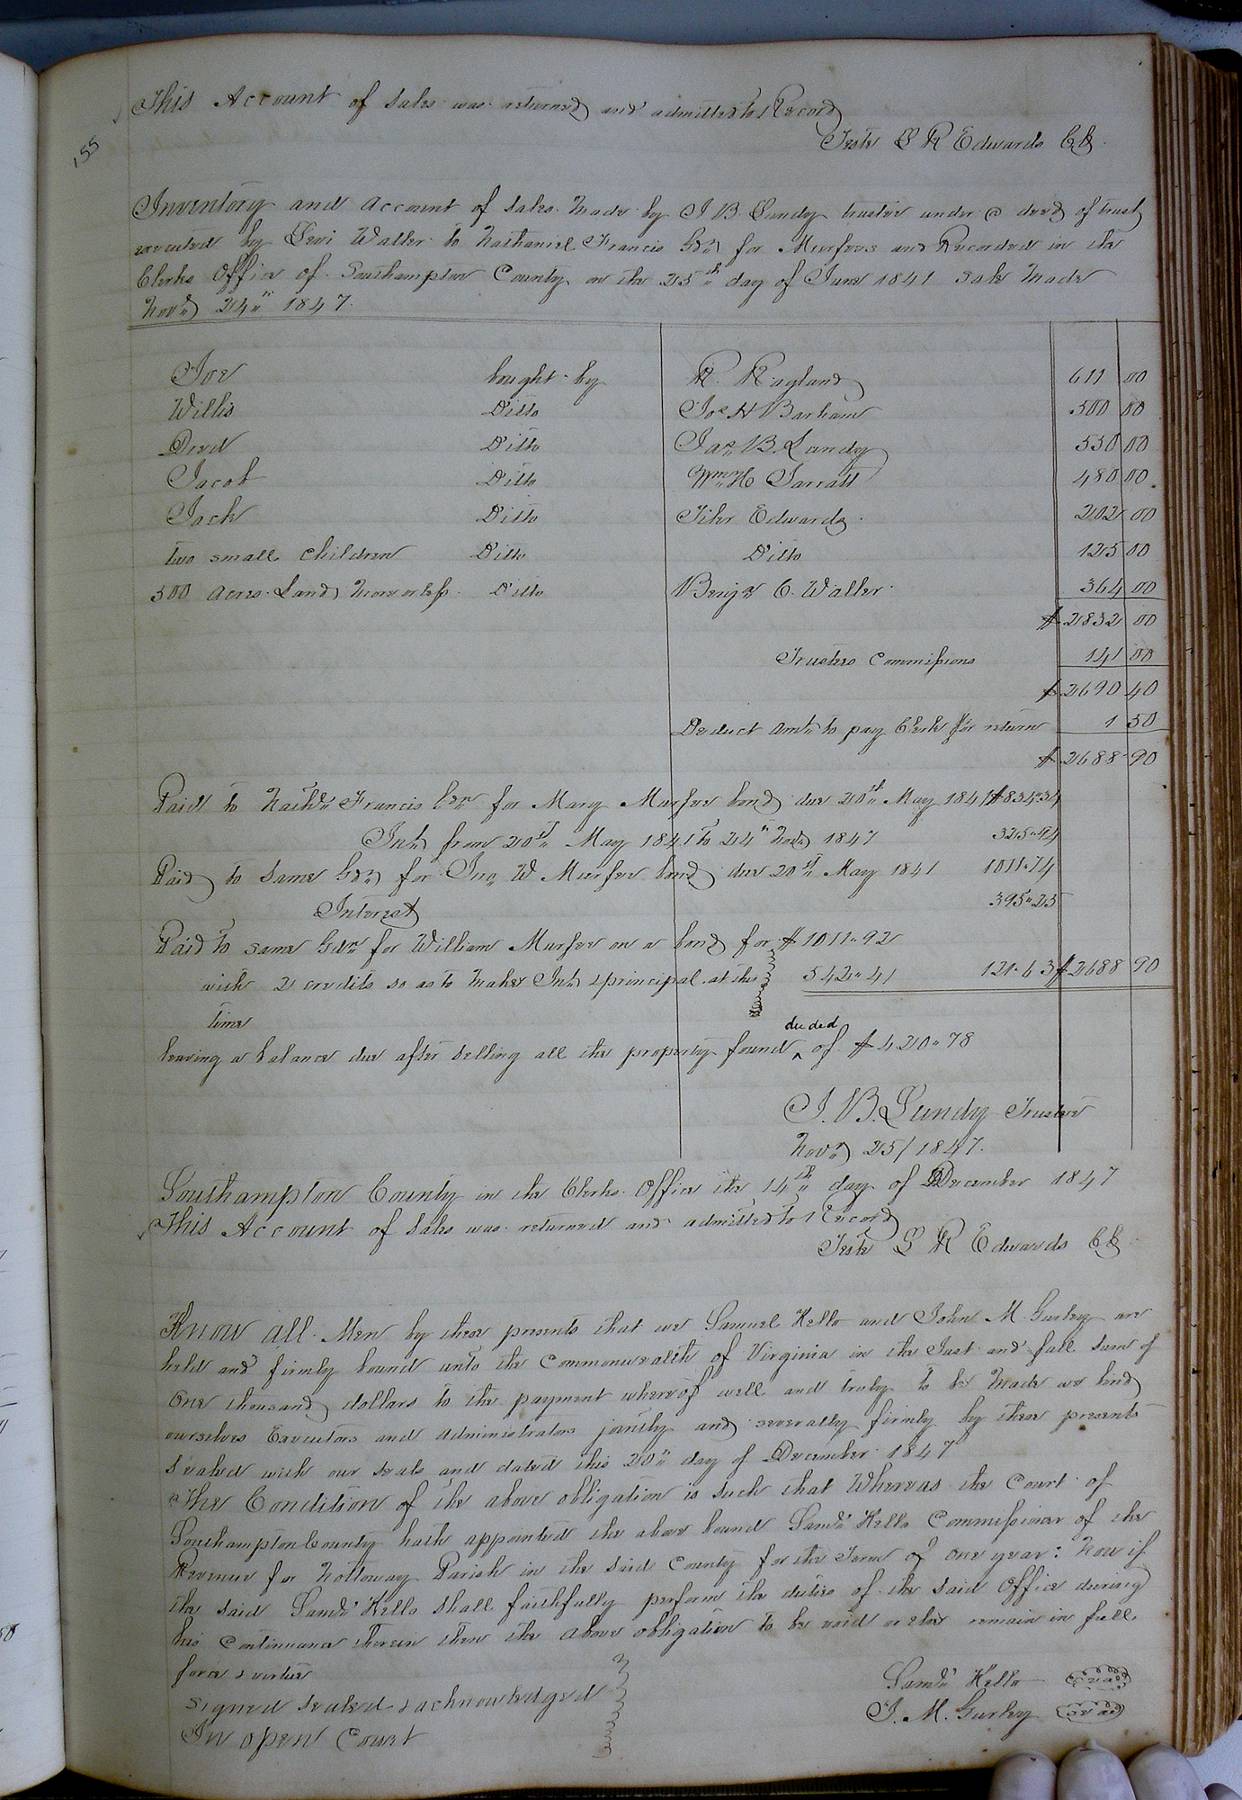 This Account of Sales was returned and admitted to Record
Teste L R Edwards Clk
155
Inventory and Account of Sales made by J B Lundy trustee under a deed of trust
executed by Levi Waller to Nathaniel Francis Gdn for Murfees and Recorded in the
Clerks Office of Southampton County on the 25th day of June 1841 Sale made
Novr 24th 1847.
Joe bought by R. Ragland 611 00
Willis Ditto Jos H Barham 500 00
Dred Ditto Jas B. Lundy 550 00
Jacob Ditto Wm H Jarratt 480 00
Jack Ditto Tiler Edwards 202 00
two small children Ditto Ditto 125 00
500 Acres Land more or less Ditto Benja C. Waller 364 00
$2832 00
Trustees Commissions 141 00
$2690 40
Deduct amt to pay Clerk for return 1 50
$2688 90
Paid to Nathl Francis Gdn for Mary Murfee bond due 20th May 1841 $834.34
Int from 20th May 1841 to 24th Novr 1847 325.94
Paid to same Gdn for Jno W Murfee bond due 20th May 1841 1011.74
Interest 395.25
Paid to same Gdn for William Murfee on a bond for $1011.92
with 2 credits so as to make Int & principal at this 542.41 121.63 $2688 90
time
leaving a balance due after selling all the property found ^ of $420.78
deeded
J. B. Lundy Trustee
Novr 25/1847.
Southampton County in the Clerks Office the 14th day of December 1847
This Account of Sales was returned and admitted to Record
Teste L R Edwards Clk
Know all Men by these presents that we Samuel Kello and John M. Gurley are
held and firmly bound unto the Commonwealth of Virginia in the Just and full Sum of
One thousand dollars to the payment whereof well and truly to be made we bind
ourselves Executors and Administrators jointly and severally firmly by these presents
Sealed with our seals and dated this 20th day of December 1847
The Condition of the above obligation is such that Whereas the Court of
Southampton County hath appointed the above bound Saml Kello Commissioner of the
Revenue for Nottoway Parish in the said County for the Term of one year: Now if
the said Saml Kello shall faithfully perform the duties of the said Office during
his Continuance therein then the above obligation to be void or else remain in full
force & virtue
Signed Sealed & acknowledged
In open Court
Saml Kello seal
J. M. Gurley seal